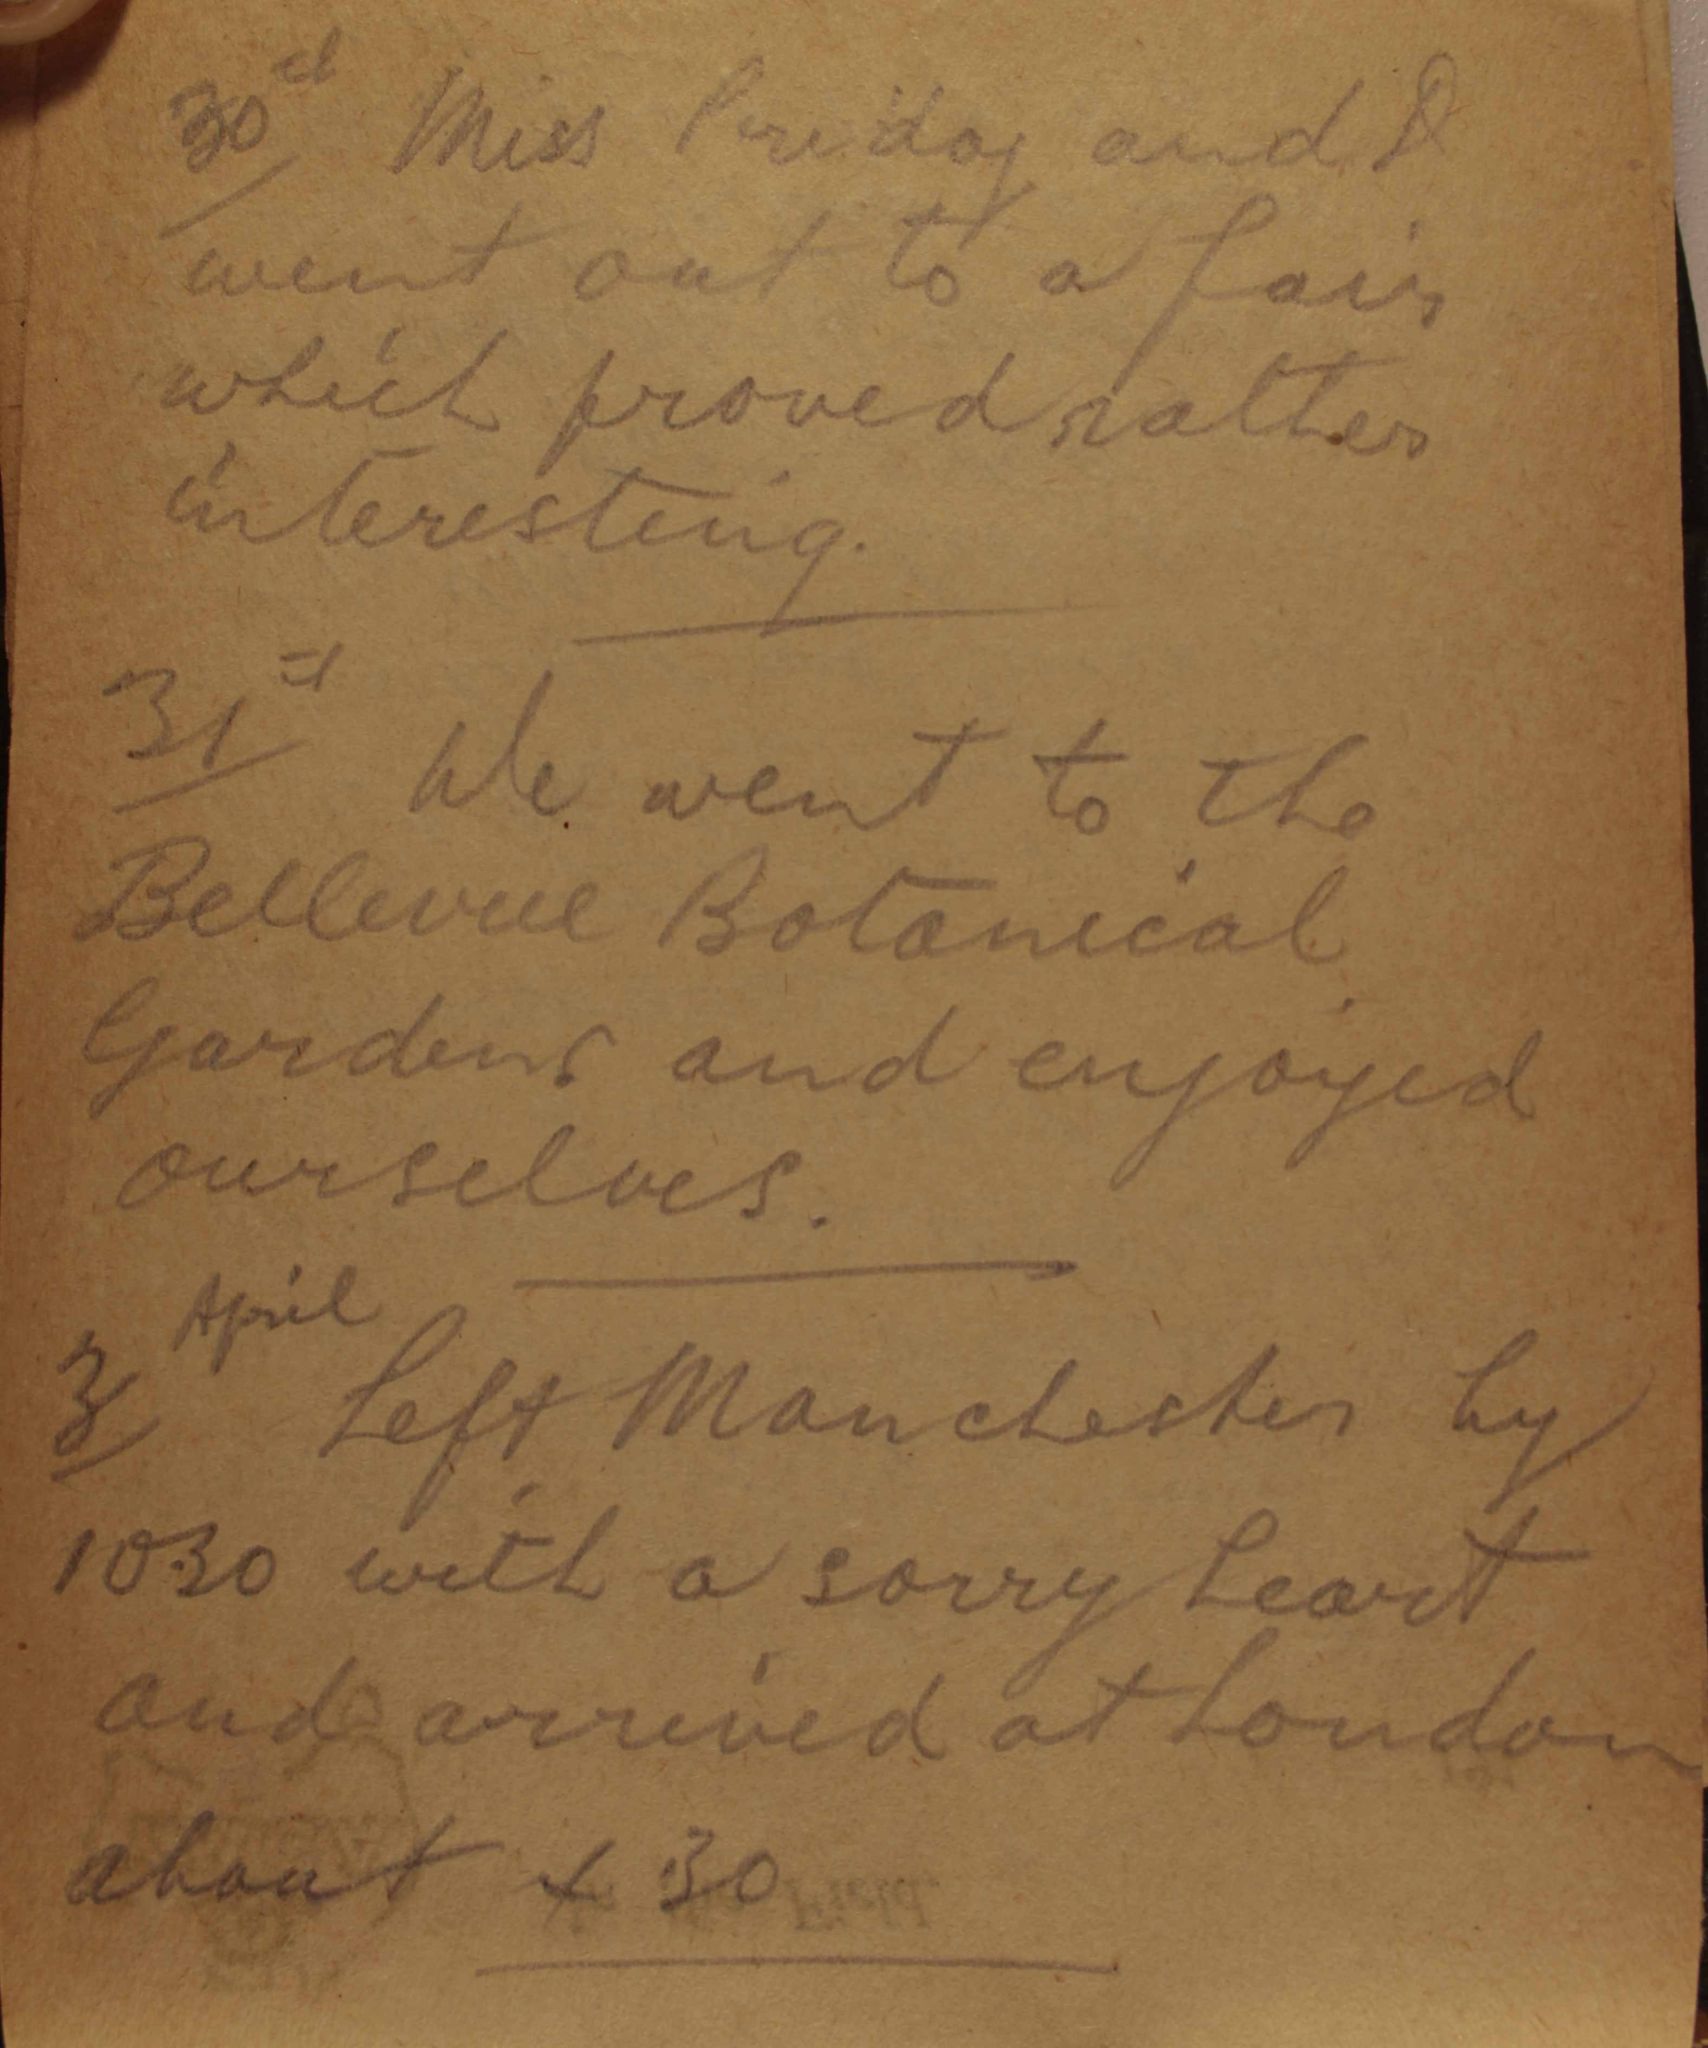 30th Miss and I
went out to a fair
which proved rather
interesting.
31st We went to the
Bellevue Botanical
Gardens and enjoyed
ourselves.
April
3 Left Manchester by
1030 with a sorry heart
and arrived at London
about 30